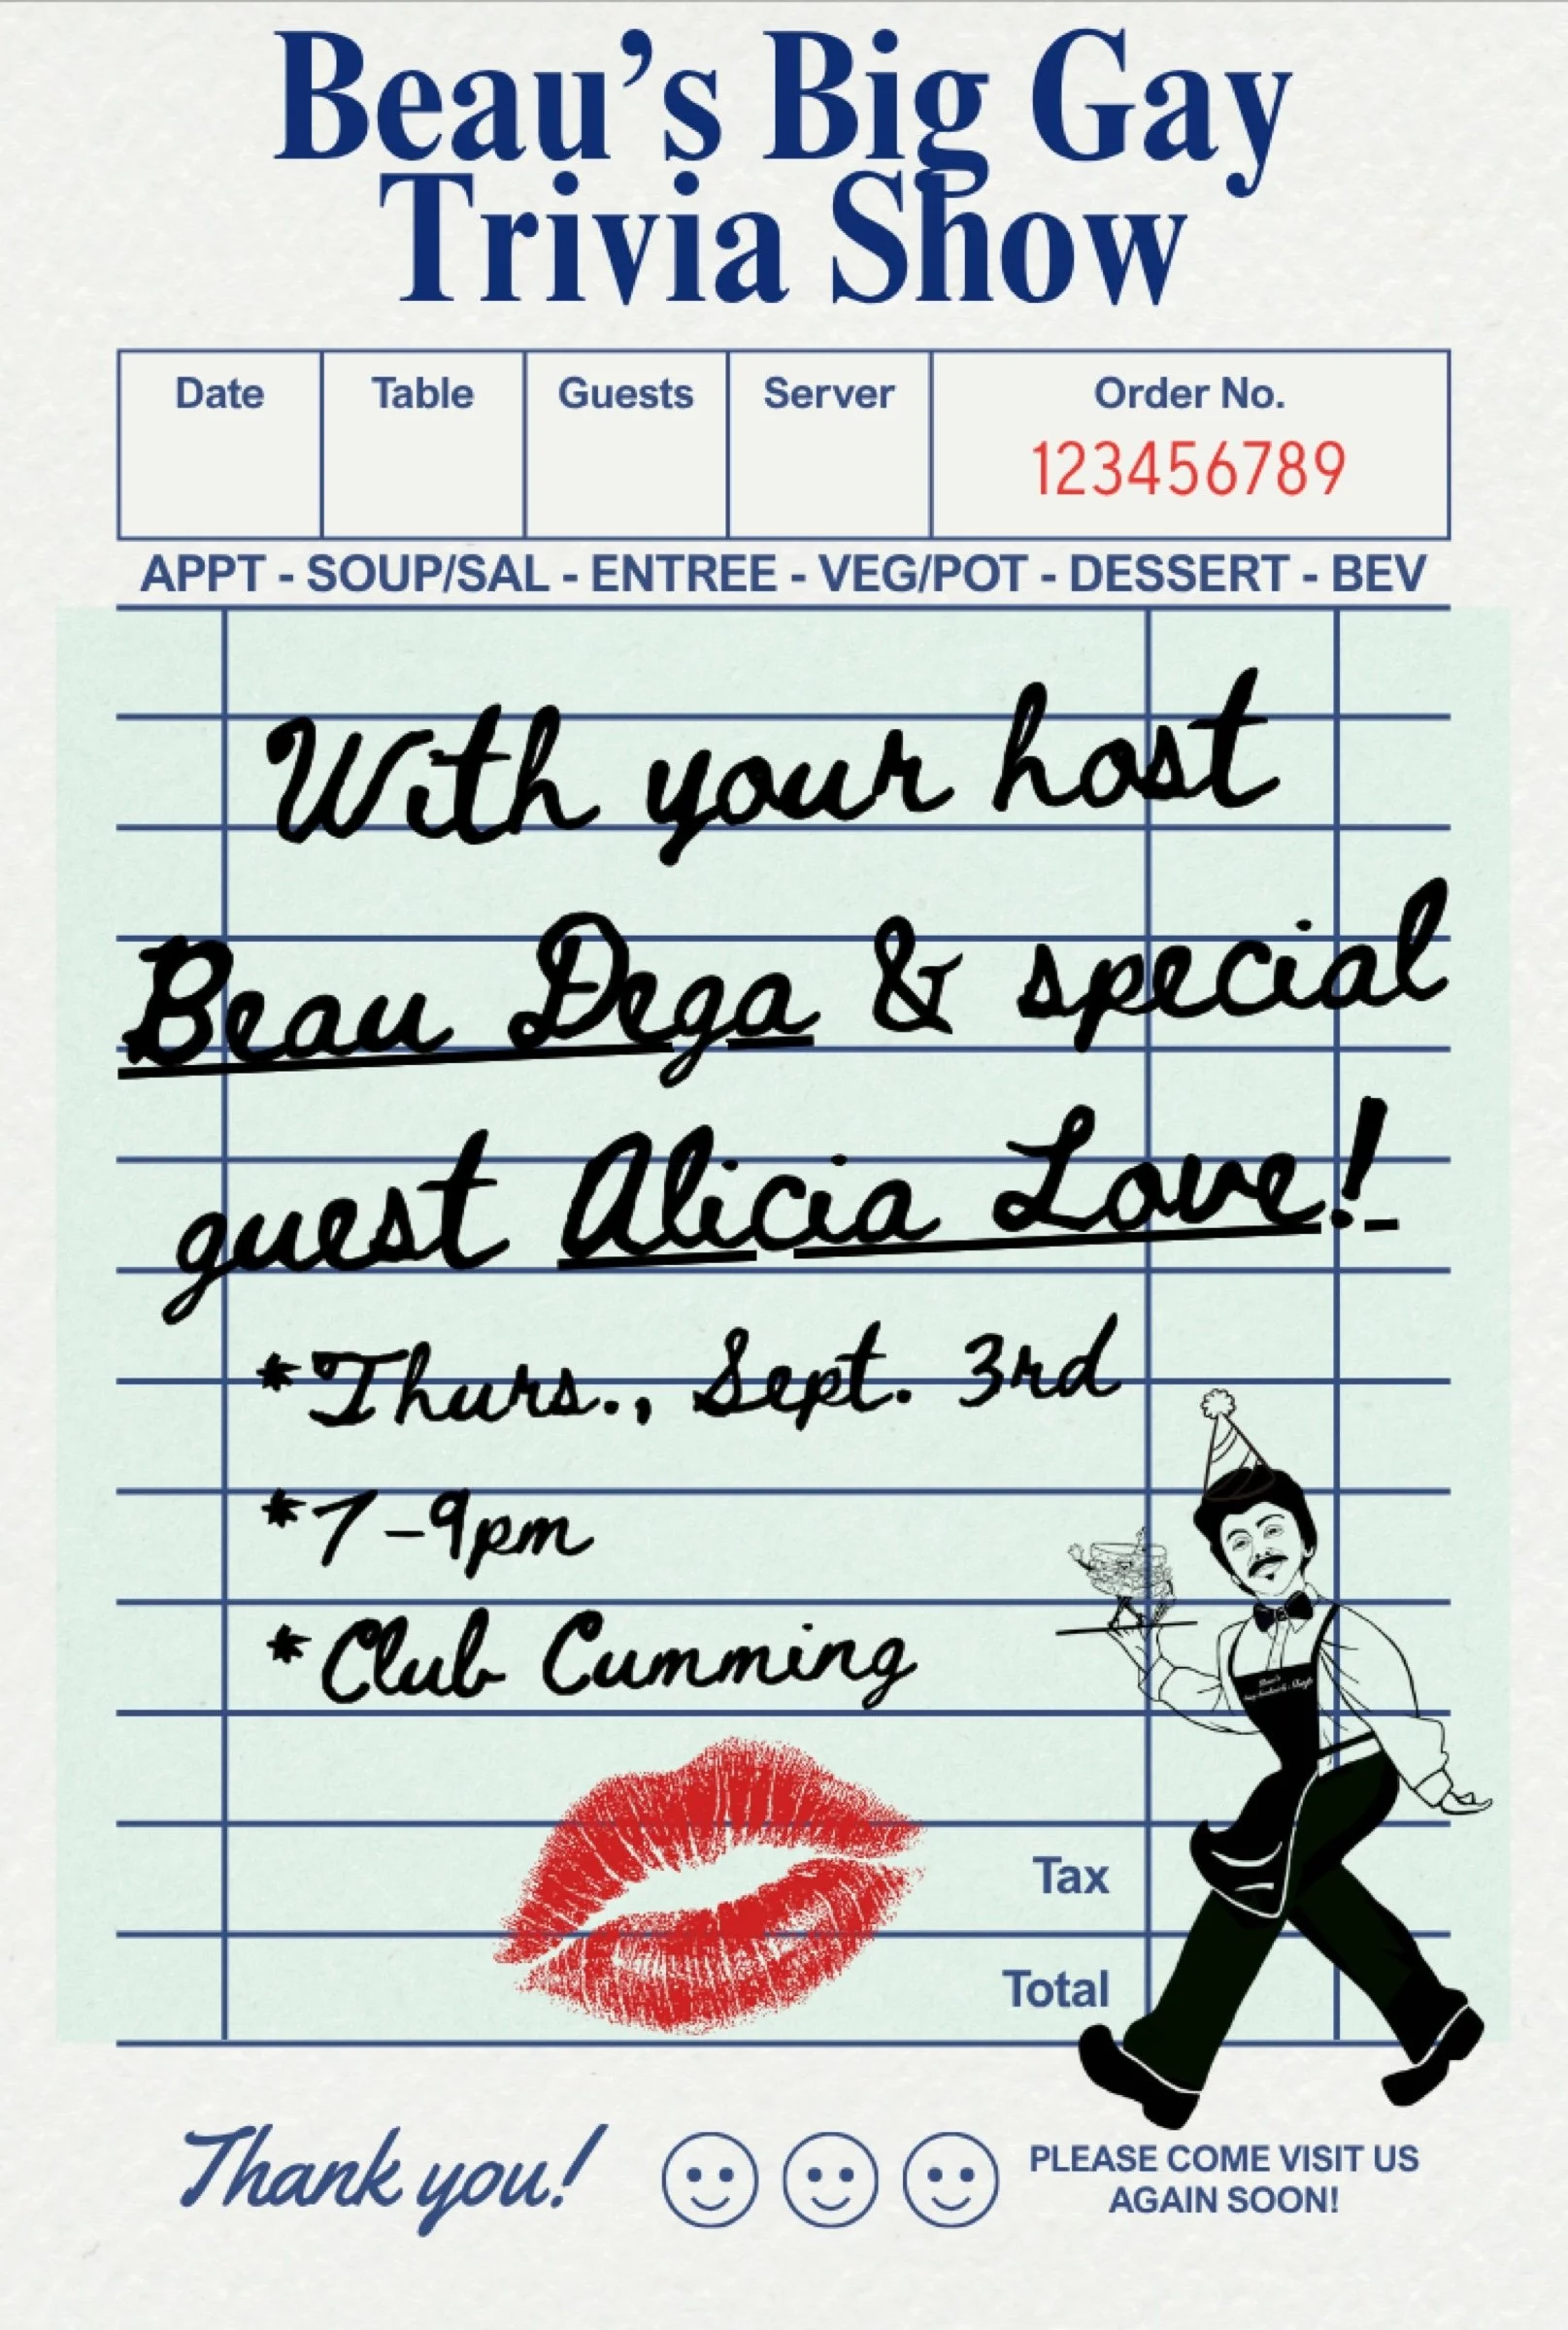 Beau's Big Gay
Trivia Show
Date Table Guests Server Order No.
123456789
APPT - SOUP/SAL - ENTREE - VEG/POT - DESSERT - BEV
With your host
Beau Dega & special
guest Alicia Love!
*Thurs., Sept. 3rd
*7-9pm
*Club Cumming
Tax
Total
Thank you!
PLEASE COME VISIT US
AGAIN SOON!